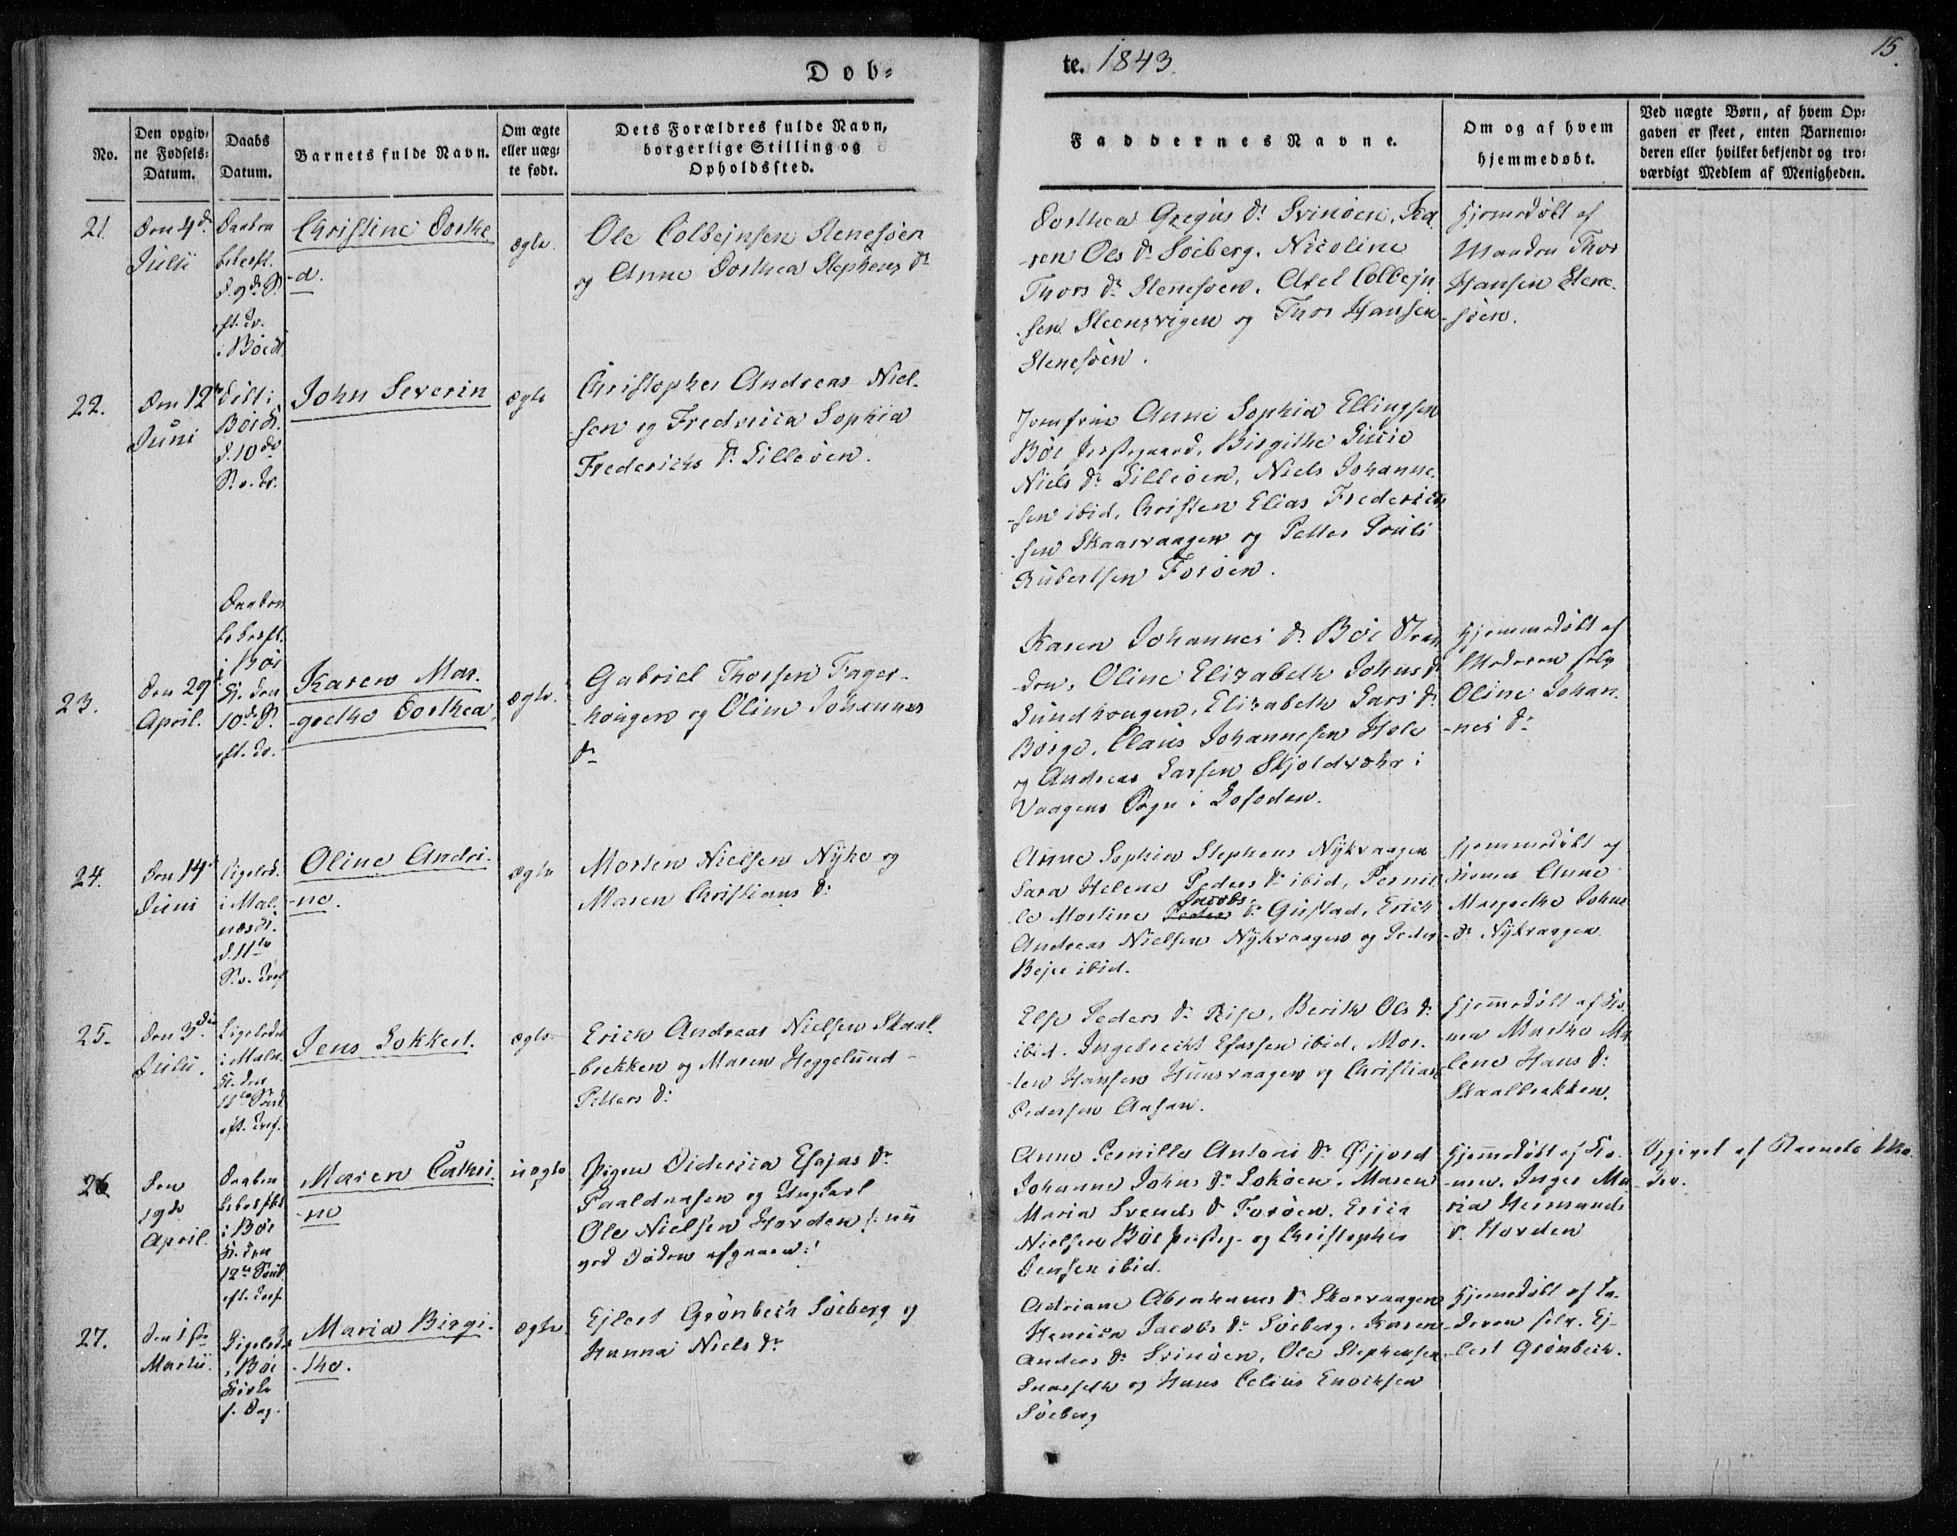 Døb-
te. 1843.
15.
No.
Den opgiv-
ne Fødsels-
Datum.
Daabs
Datum.
Barnets fulde Navn.
Om ægte
eller uæg-
te født.
Dets Forældres fulde Navn,
borgerlige Stilling og
Opholdssted.
Faddernes Navne.
Om og af hvem
hjemmedøbt.
Ved uægte Børn, af hvem Op-
gaven er skeet, enten Barnemo-
deren eller hvilket bekjendt og tro-
værdigt Medlem af Menigheden.
21.
Den 4de
Julii
Daaben
bekræft.
d. 9de S.
eft. Tr.
i Bøe K.
Christine Dorthe
-a.
ægte.
Ole Colbejnsen Stenesøen
og Anne Dorthea Stephens Dr
Dorthea Gregus Dr Svinøen, Ka
-ren Ols Dr Søeberg, Nicoline
Thors Dr Stenesøen, Axel Colbejn
-sen Steensvigen og Thor Hansen
Stenesøen.
Hjemmedøbt af
Manden Thor
Hansen Stene-
søen.
22.
Den 12te
Juni
Døbt i
Bøe K.
d. 10de
S. e. Tr.
John Severin
ægte
Christopher Andreas Niel-
sen og Frederica Sophia
Frederichs Dr Lilleøen.
Jomfrue Anne Sophia Ellingsen
Bøe Prestegaard, Birgithe Lucie
Niels Dr Lilleøen, Niels Johanne-
-sen ibid, Christen Elias Frederich
-sen Skaarvaagen og Petter Pouli
Rubertsen Forøen.
23.
Den 29
April.
Daaben
bekræft.
i Bøe
K. den
10de S.
eft. Tr.
Karen Mar-
-grethe Dorthea
ægte.
Gabriel Thorsen Fager-
-hougen og Oline Johannes
Dr
Karen Johannes Dr Bøe Stran
-den, Oline Elizabeth Johns Dr
Sundhougen, Elizabeth Lars Dr
Børge, Claus Johannesen Hole
og Andreas Larsen Skjoldvær i
Vaagens Sogn i Lofoden.
Hjemmedøbt af
Moderen selv
Oline Johan-
-nes Dr
24.
Den 14de
Juni
Ligeled.
i Mal-
næs K.
d. 11te
S. e. Tref.
Oline Andri-
-ne.
ægte
Morten Nielsen Nyke og
Maren Christians Dr
Anne Sophia Stephens Nykvaagen
Sara Helene Peders Dr ibid, Pernil
-le Martine Jacobs Dr Gustad, Erich
Andreas Nielsen Nykvaagen og Peder
Beje ibid.
Hjemmedøbt af
Konen Anne
Margrethe Johns
Dr Nykvaagen
25.
Den 3die
Julii.
Ligeledes
i Maln.
K. den
11te Sønd.
eft. Tref.
Jens Lokkert.
ægte.
Erich Andreas Nielsen Skaal-
-brekken og Maren Heggelund
Petters Dr
Else Peders Dr Rise, Berith Ols Dr
ibid. Ingebrecht Esassen ibid, Mor-
-ten Hansen Hunsvaagen og Christian
Pedersen Aasan.
Hjemmedøbt af Ko-
nen Marthe Ma
-lene Hans Dr
Skaalbrekken.
26.
Den
19de
April.
Daaben
bekræftet
i Bøe
K. den
12te Sønd.
eft. Tref.
Maren Cathri-
-ne
uægte
Pigen Diderica Esajas Dr
Paaldnesen og Ungkarl
Ole Nielsen Horden /: nu
ved Døden afgaaen :/
Anne Pernilla Antoni Dr Øjjord
Johanne Johns Dr Lokøen, Maren
Maria Svends Dr Forøen, Erich
Nielsen Bøe Prestg. og Christopher
Jensen ibid.
Hjemmedøbt af Ko-
-nen Inger Ma
ria Hermands
Dr Horden
Opgivet af Barnets Mo-
-der.
27.
Den 1ste
Martii.
Ligeledes
i Bøe
Kirke
s. Dag.
Maria Birgi-
-the.
ægte.
Ejlert Grønbech Søeberg og
Hanna Niels Dr
Adriane Abrahams Dr Skorvaagen
Henrica Jacobs Dr Søeberg, Karen
Anders Dr Svinøen, Ole Stephensen
Snarseth og Hans Celius Enoksen
Søeberg
Hjemmedøbt af Fa-
-deren selv, Ej-
-lert Grønbech.